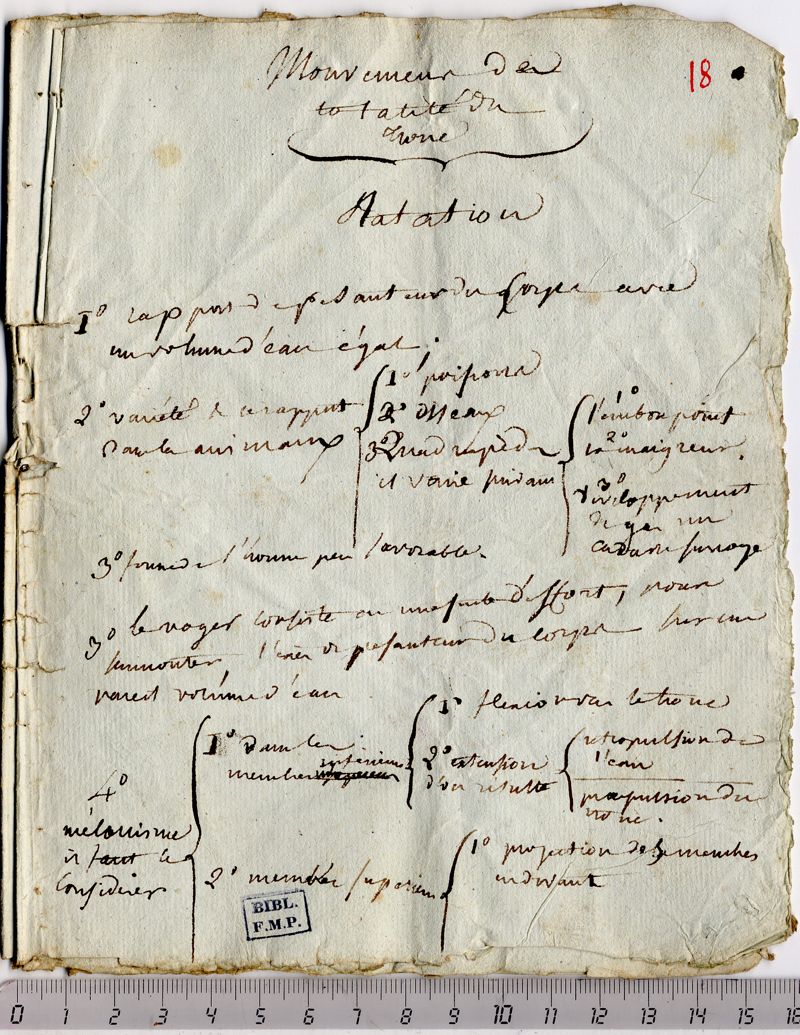 Mouvemens de
totalité du
Tronc
18
Natation
1° rapport de pesanteur du Corps avec
un volume d'eau égal.
2° variété de ce rapport
Dans les animaux
1° poissons
2° oiseaux
3° Quadrupèdes
il varie suivant
1°
l'embonpoint
2°
la maigreur.
3°
développement
de gaz un
cadavre surnage
3° forme de l'homme peu favorable.
3° le nager consiste en une suite d'effort, pour
surmonter, l'excès de pesanteur du corps sur un
pareil volume d'eau
4°
mécanisme
il faut le
Considérer
1° dans les
membres inférieurs
1° flexion sur le tronc
2° extension
d'où résulte
retropulsion de
l'eau
propulsion du
tronc.
2° membres supérieurs
1° projection des membres
en devant
BIBL.
F.M.P.
0 1 2 3 4 5 6 7 8 9 10 11 12 13 14 15 16